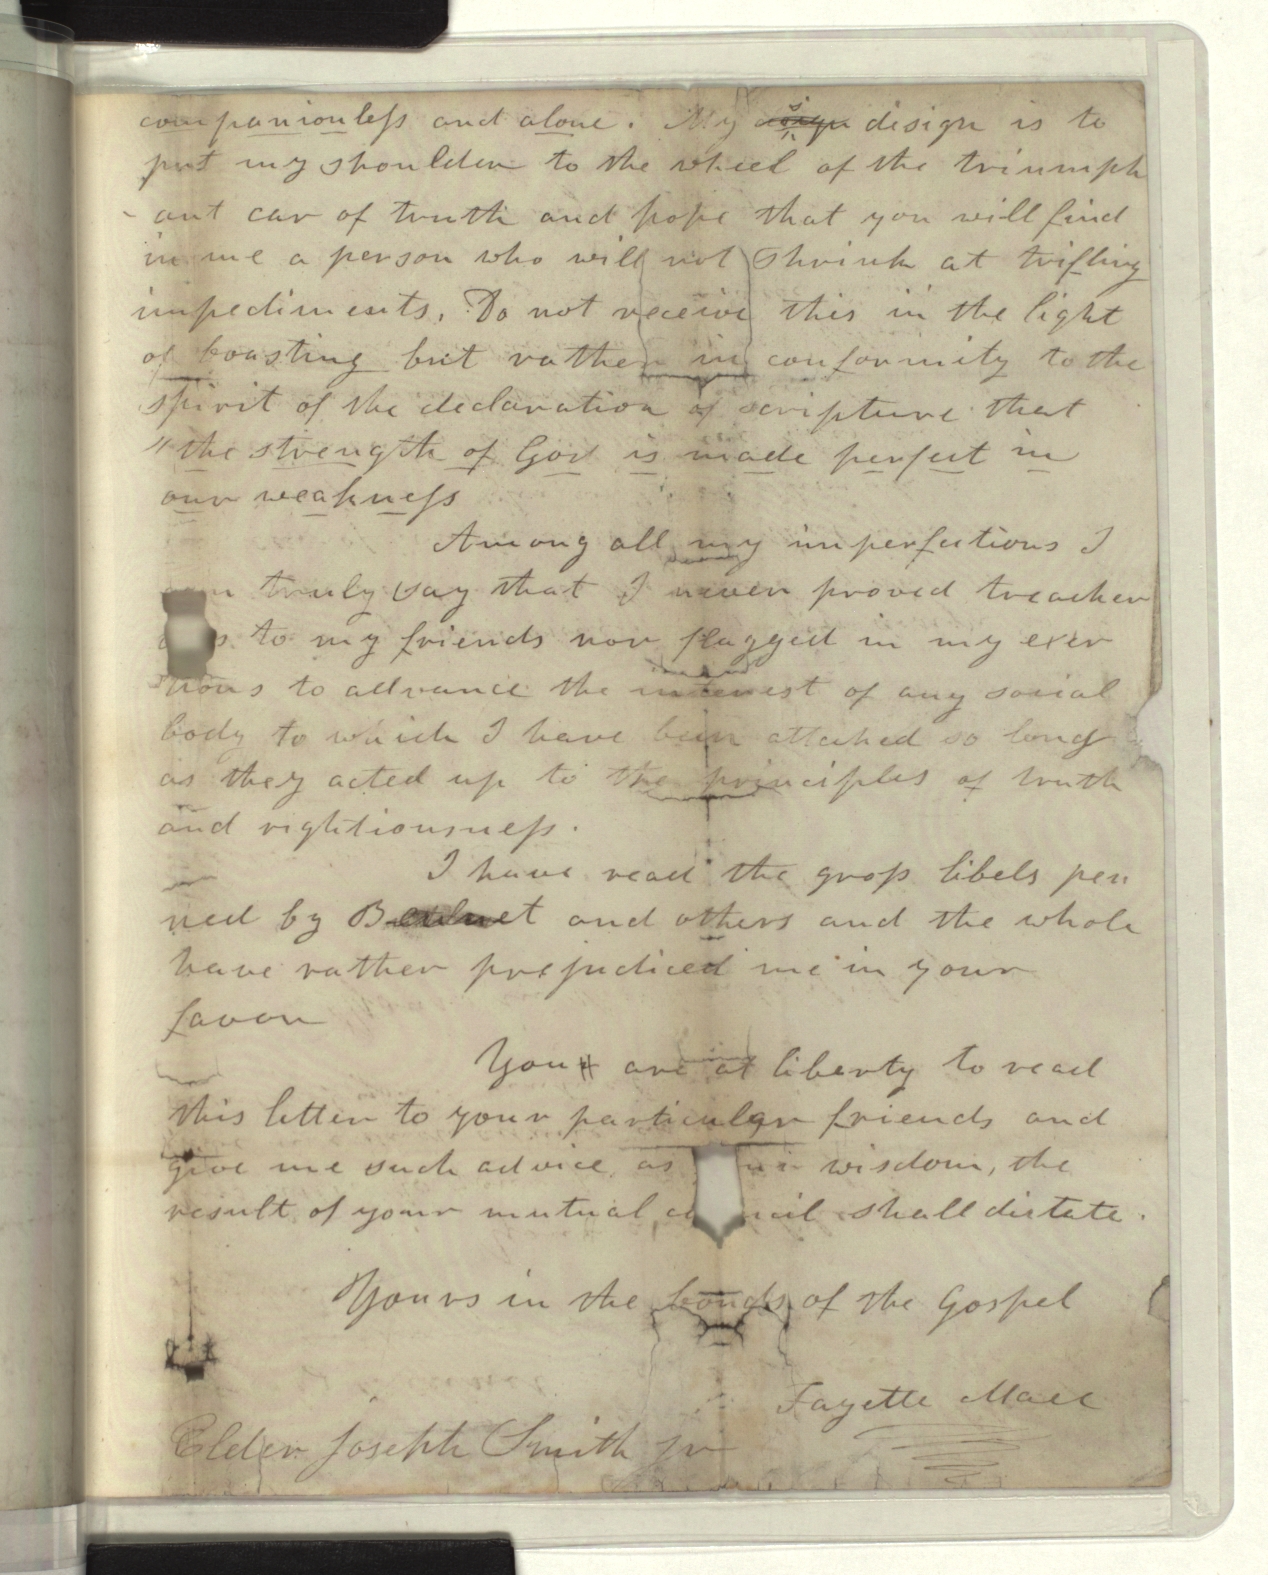 companionless and alone. My disign is to
put my shoulder to the wheel of the triumph
-ant car of truth and hope that you will find
in me a person who will not shrink at trifling
impediments. Do not receive this in the light
of boasting but rather in conformity to the
spirit of the declaration of scripture that
"the strength of God is made perfect in
our weakness
Among all my imperfections I
can truly say that I never proved treacher
to my friends nor flagged in my exer
tions to advance the interest of any social
body to which I have been attached so long
as they acted up to the principles of truth
and rightiousness.
I have read the gross libels pen
ned by and others and the whole
have rather prejudiced me in your
favor
You are at liberty to read
this letter to your particular friends and
give me such advice as wisdom, the
result of your mutual shall dictate.
Yours in the bonds of the Gospel
Fayette Mace
Elder Joseph Smith Jr